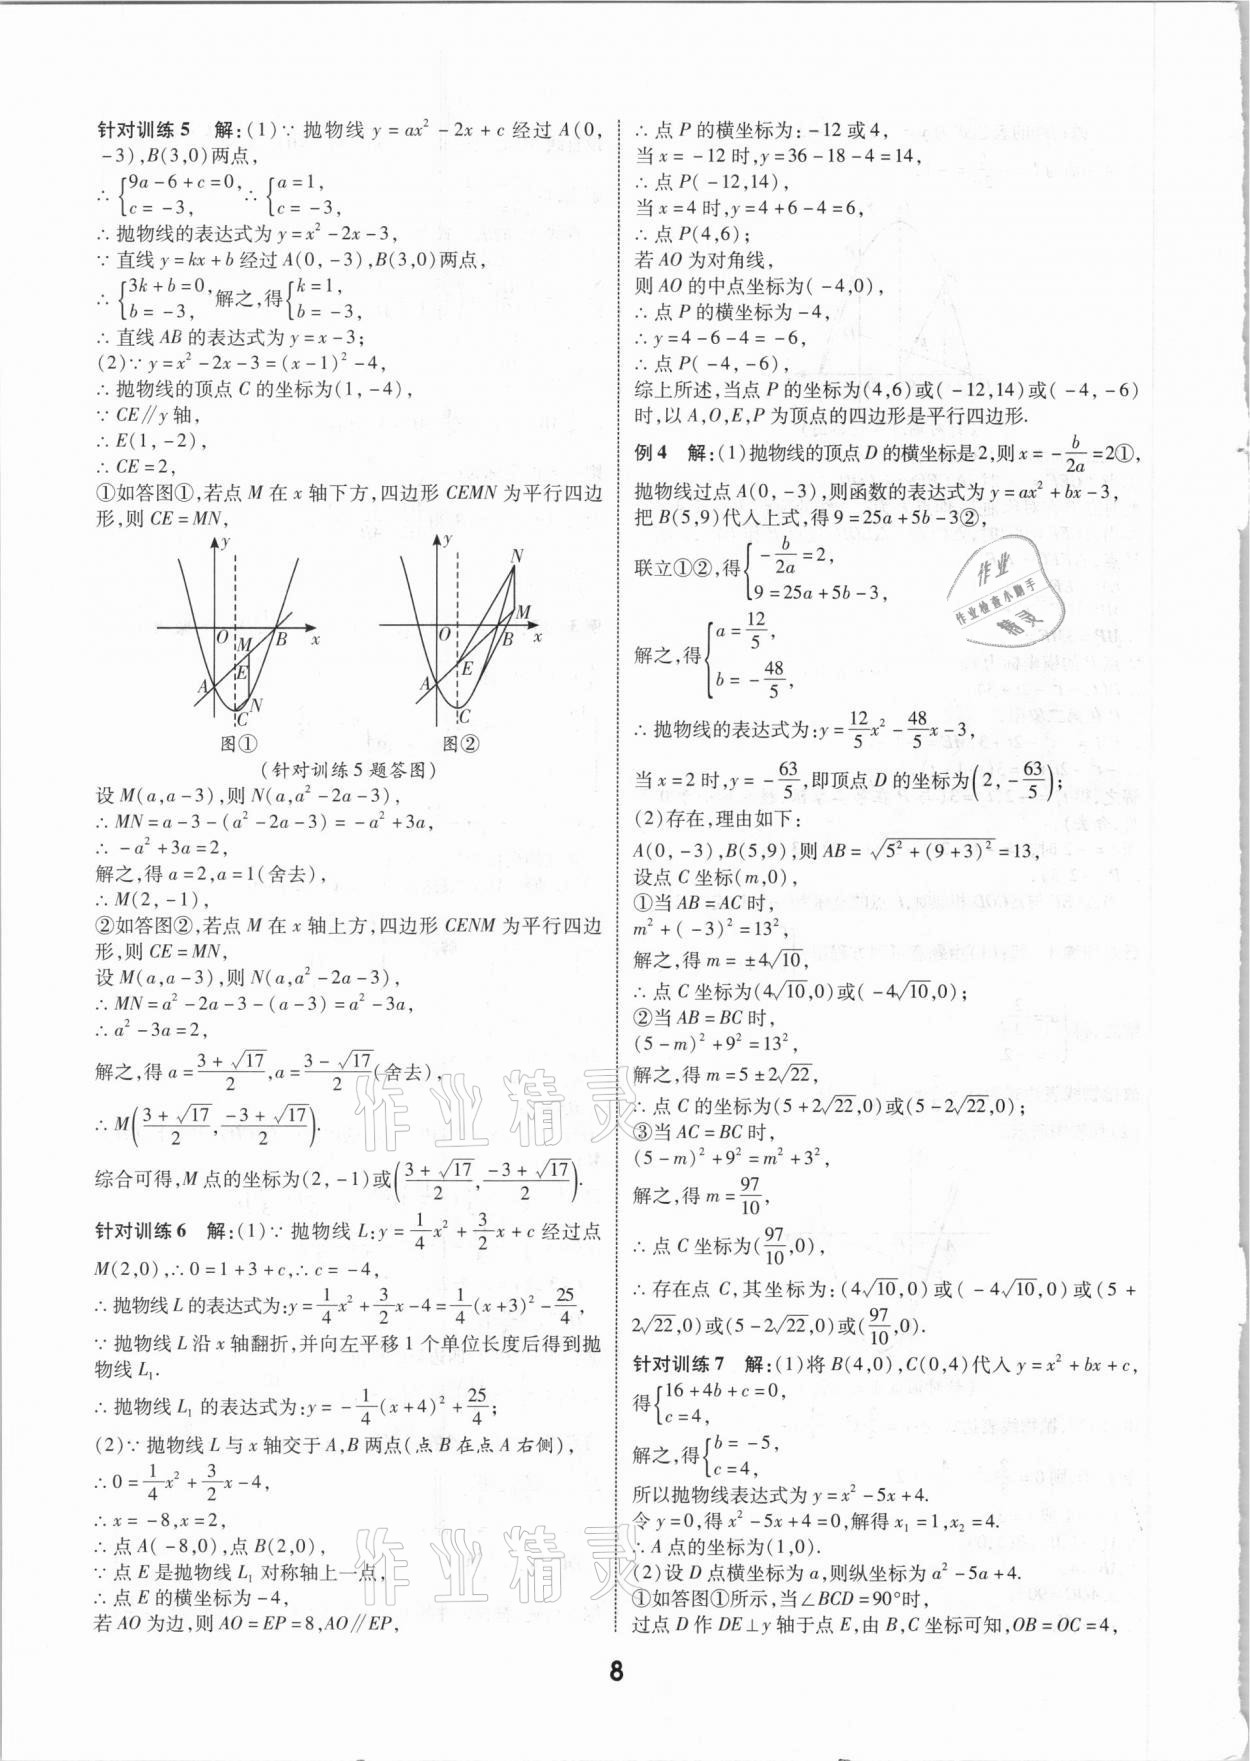 针对训练5 解:(1)∵ 抛物线 y=ax²-2x+c 经过 A(0,
-3),B(3,0)两点,
∴ {9a-6+c=0, c=-3, ∴ {a=1, c=-3,
∴ 抛物线的表达式为 y=x²-2x-3,
∵ 直线 y=kx+b 经过 A(0,-3),B(3,0)两点,
∴ {3k+b=0, b=-3, 解之,得{k=1, b=-3,
∴ 直线 AB 的表达式为 y=x-3;
(2)∵ y=x²-2x-3=(x-1)²-4,
∴ 抛物线的顶点 C 的坐标为(1,-4),
∵ CE∥y 轴,
∴ E(1,-2),
∴ CE=2,
①如答图①,若点 M 在 x 轴下方,四边形 CEMN 为平行四边
形,则 CE=MN,
y O M B x E A N C
图①
y N O M B x E A C
图②
(针对训练5题答图)
设 M(a,a-3),则 N(a,a²-2a-3),
∴ MN=a-3-(a²-2a-3)=-a²+3a,
∴ -a²+3a=2,
解之,得 a=2,a=1(舍去),
∴ M(2,-1),
②如答图②,若点 M 在 x 轴上方,四边形 CENM 为平行四边
形,则 CE=MN,
设 M(a,a-3),则 N(a,a²-2a-3),
∴ MN=a²-2a-3-(a-3)=a²-3a,
∴ a²-3a=2,
解之,得 a=(3+√17)/2,a=(3-√17)/2(舍去),
∴ M((3+√17)/2,(-3+√17)/2).
综合可得,M 点的坐标为(2,-1)或((3+√17)/2,(-3+√17)/2).
针对训练6 解:(1)∵ 抛物线 L:y=1/4x²+3/2x+c 经过点
M(2,0),∴0=1+3+c,∴c=-4,
∴抛物线 L 的表达式为:y=1/4x²+3/2x-4=1/4(x+3)²-25/4,
∵ 抛物线 L 沿 x 轴翻折,并向左平移 1 个单位长度后得到抛
物线 L₁.
∴ 抛物线 L₁ 的表达式为:y=-1/4(x+4)²+25/4;
(2)∵ 抛物线 L 与 x 轴交于 A,B 两点(点 B 在点 A 右侧),
∴0=1/4x²+3/2x-4,
∴x=-8,x=2,
∴点 A(-8,0),点 B(2,0),
∵ 点 E 是抛物线 L₁ 对称轴上一点,
∴ 点 E 的横坐标为-4,
若 AO 为边,则 AO=EP=8,AO∥EP,
∴ 点 P 的横坐标为:-12或4,
当 x=-12 时,y=36-18-4=14,
∴ 点 P(-12,14),
当 x=4 时,y=4+6-4=6,
∴ 点 P(4,6);
若 AO 为对角线,
则 AO 的中点坐标为(-4,0),
∴ 点 P 的横坐标为-4,
∴ y=4-6-4=-6,
∴ 点 P(-4,-6),
综上所述,当点 P 的坐标为(4,6)或(-12,14)或(-4,-6)
时,以 A,O,E,P 为顶点的四边形是平行四边形.
例4 解:(1)抛物线的顶点 D 的横坐标是2,则 x=-b/2a=2①,
抛物线过点 A(0,-3),则函数的表达式为 y=ax²+bx-3,
把 B(5,9)代入上式,得 9=25a+5b-3②,
联立①②,得{-b/2a=2, 9=25a+5b-3,
解之,得{a=12/5, b=-48/5,
∴ 抛物线的表达式为:y=12/5x²-48/5x-3,
当 x=2 时,y=-63/5,即顶点 D 的坐标为(2,-63/5);
(2)存在,理由如下:
A(0,-3),B(5,9),则 AB=√(5²+(9+3)²)=13,
设点 C 坐标(m,0),
①当 AB=AC 时,
m²+(-3)²=13²,
解之,得 m=±4√10,
∴ 点 C 坐标为(4√10,0)或(-4√10,0);
②当 AB=BC 时,
(5-m)²+9²=13²,
解之,得 m=5±2√22,
∴ 点 C 的坐标为(5+2√22,0)或(5-2√22,0);
③当 AC=BC 时,
(5-m)²+9²=m²+3²,
解之,得 m=97/10,
∴ 点 C 坐标为(97/10,0),
∴ 存在点 C,其坐标为:(4√10,0)或(-4√10,0)或(5+
2√22,0)或(5-2√22,0)或(97/10,0).
针对训练7 解:(1)将 B(4,0),C(0,4)代入 y=x²+bx+c,
得{16+4b+c=0, c=4,
解之,得{b=-5, c=4,
所以抛物线表达式为 y=x²-5x+4.
令 y=0,得 x²-5x+4=0,解得 x₁=1,x₂=4.
∴A 点的坐标为(1,0).
(2)设 D 点横坐标为 a,则纵坐标为 a²-5a+4.
①如答图①所示,当∠BCD=90°时,
过点 D 作 DE⊥y 轴于点 E,由 B,C 坐标可知,OB=OC=4,
8
作业
作业检查小助手
精灵
作业精灵
作业精灵